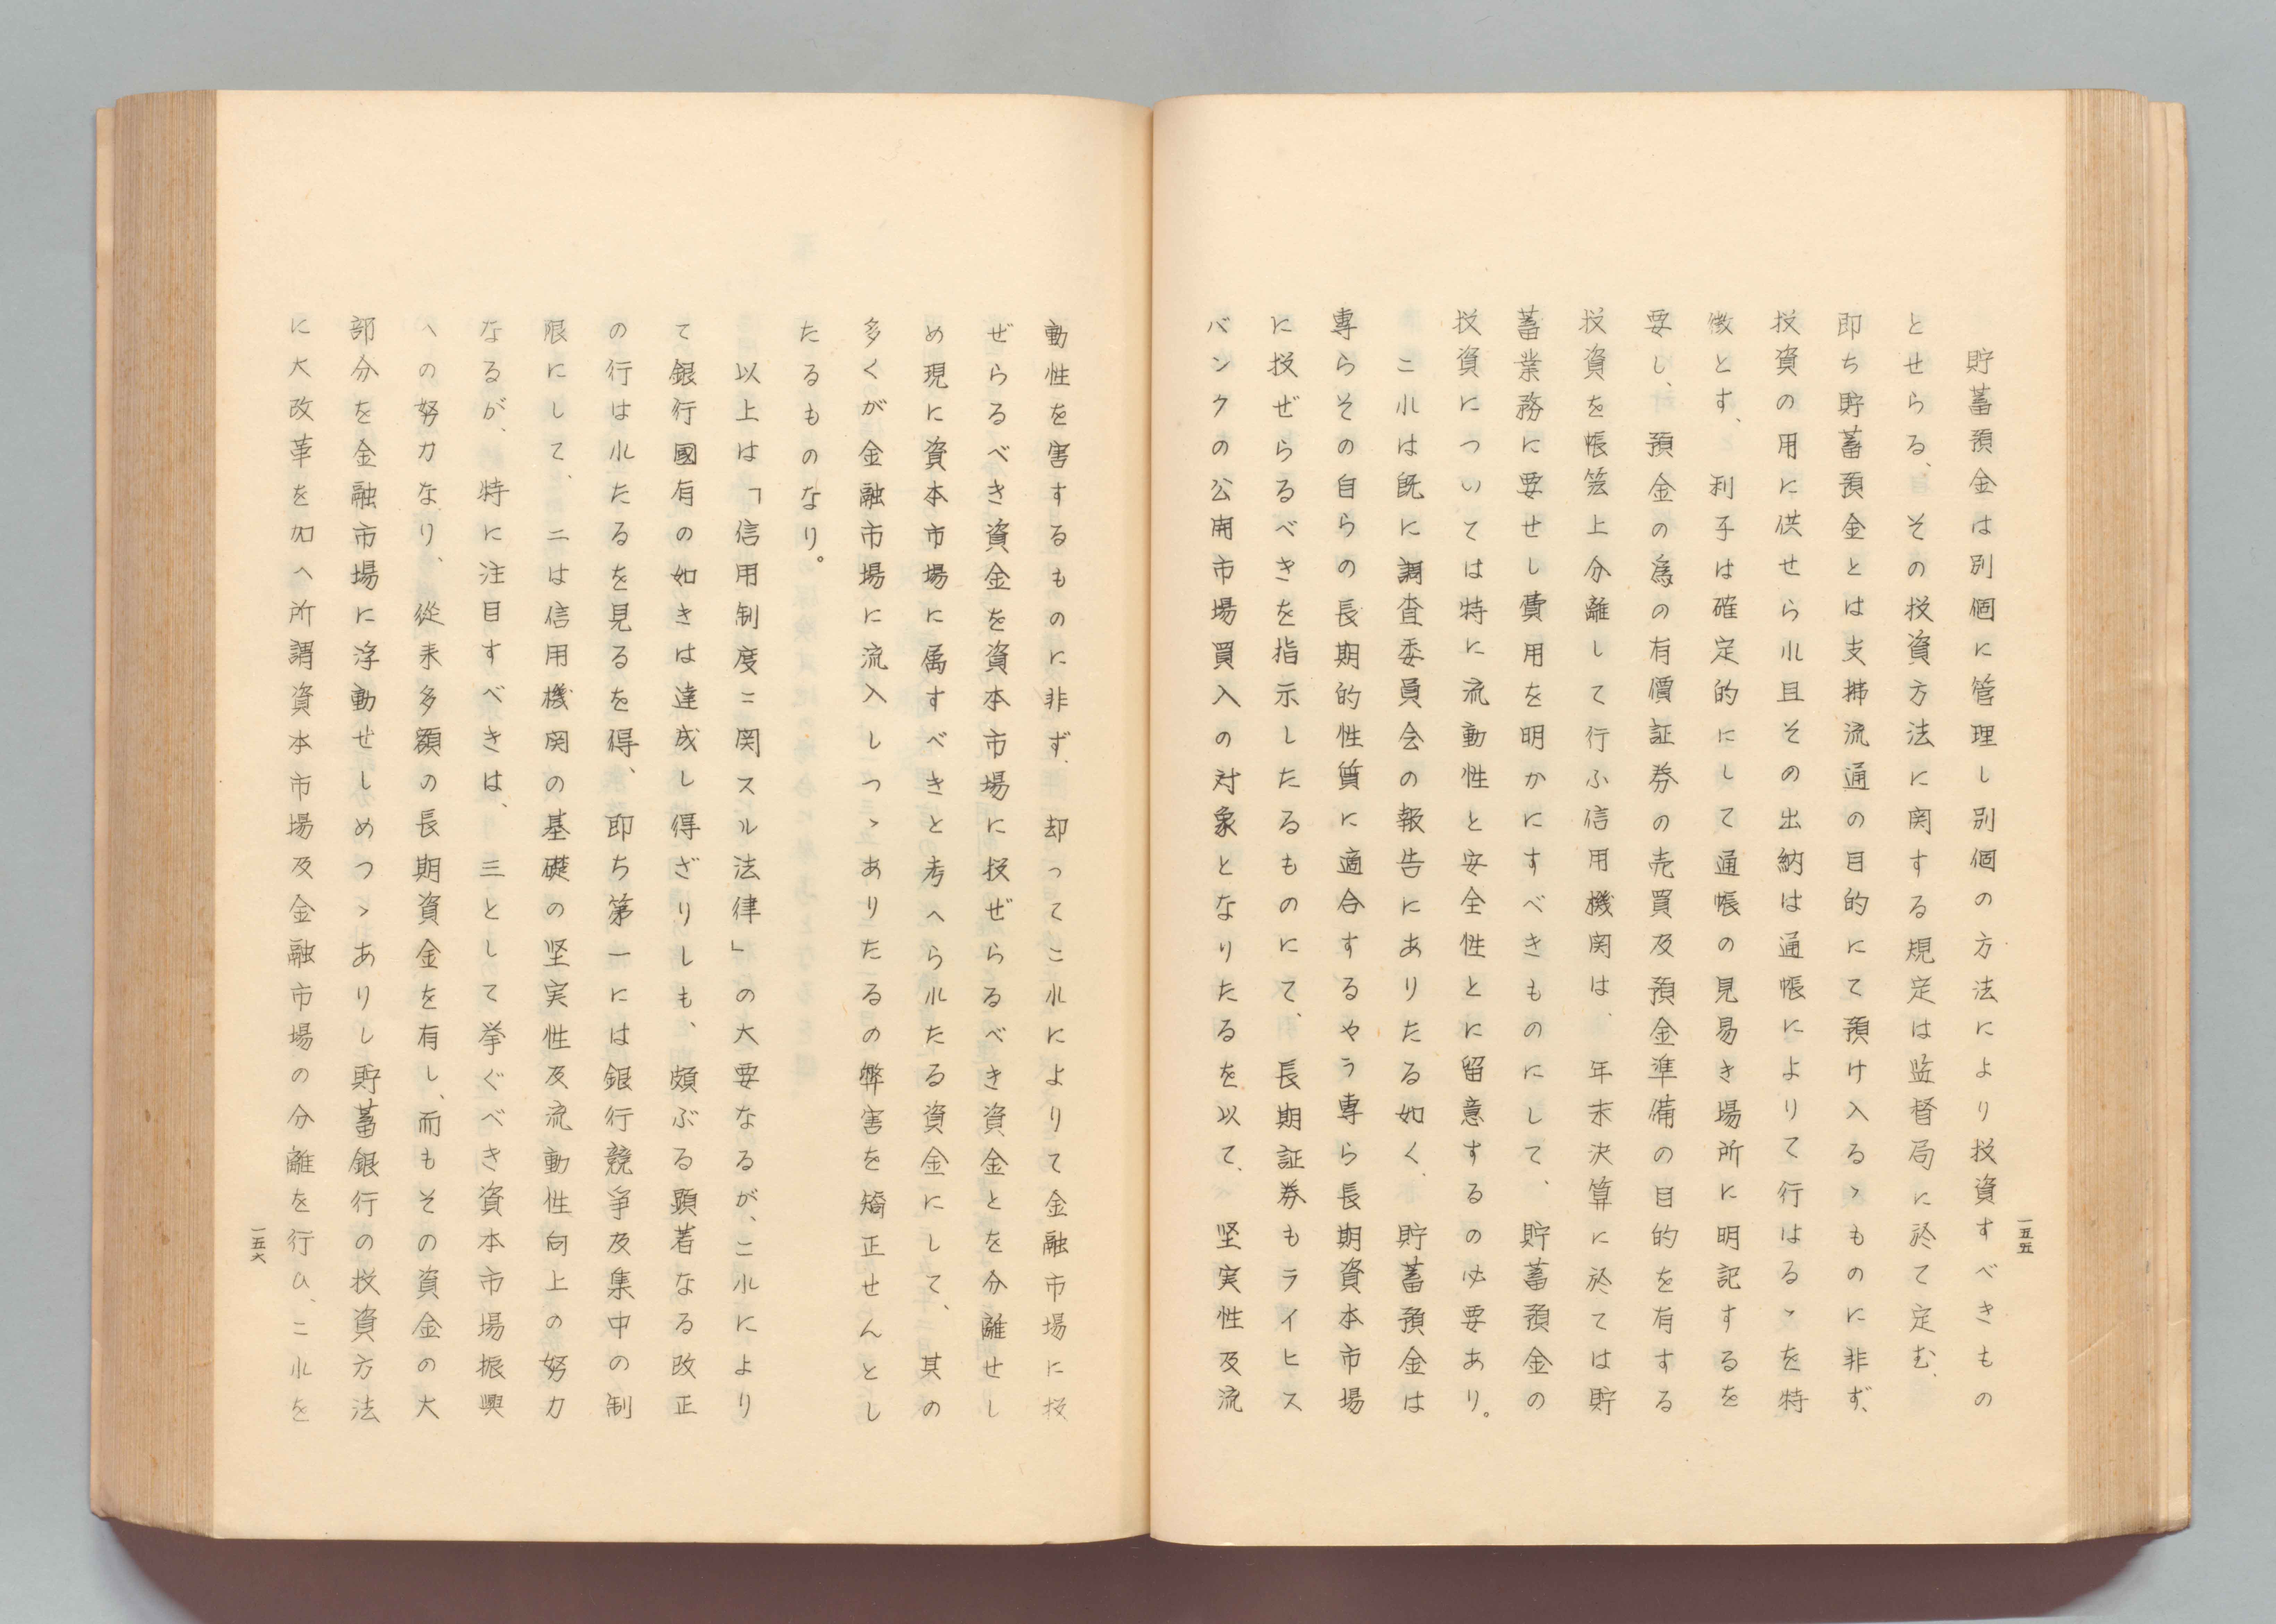 貯蓄預金は別個に管理し別個の方法により投資すべきもの
とせらる、その投資方法に関する規定は監督局に於て定む、
即ち貯蓄預金とは支拂流通の目的にて預け入るゝものに非ず、
投資の用に供せられ且その出納は通帳によりて行はるゝを特
徴とす、利子は確定的にして通帳の見易き場所に明記するを
要し、預金の為の有價証券の売買及預金準備の目的を有する
投資を帳簿上分離して行ふ信用機関は、年末決算に於ては貯
蓄業務に要せし費用を明かにすべきものにして、貯蓄預金の
投資については特に流動性と安全性とに留意するの必要あり。
これは既に調査委員会の報告にありたる如く、貯蓄預金は
専らその自らの長期的性質に適合するやう専ら長期資本市場
に投ぜらるべきを指示したるものにて、長期証券もライヒス
バンクの公開市場買入の対象となりたるを以て、堅実性及流
一五五
動性を害するものに非ず、却ってこれによりて金融市場に投
ぜらるべき資金を資本市場に投ぜらるべき資金とを分離せし
め現に資本市場に属すべきと考へられたる資金にして、其の
多くが金融市場に流入しつゝありたるの弊害を矯正せんとし
たるものなり。
以上は「信用制度ニ関スル法律」の大要なるが、これにより
て銀行國有の如きは達成し得ざりしも、頗ぶる顕著なる改正
の行はれたるを見るを得、即ち第一には銀行競爭及集中の制
限にして、二は信用機関の基礎の堅実性及流動性向上の努力
なるが、特に注目すべきは、三として挙ぐべき資本市場振興
への努力なり、從来多額の長期資金を有し、而もその資金の大
部分を金融市場に浮動せしめつゝありし貯蓄銀行の投資方法
に大改革を加へ所謂資本市場及金融市場の分離を行ひ、これを
一五六